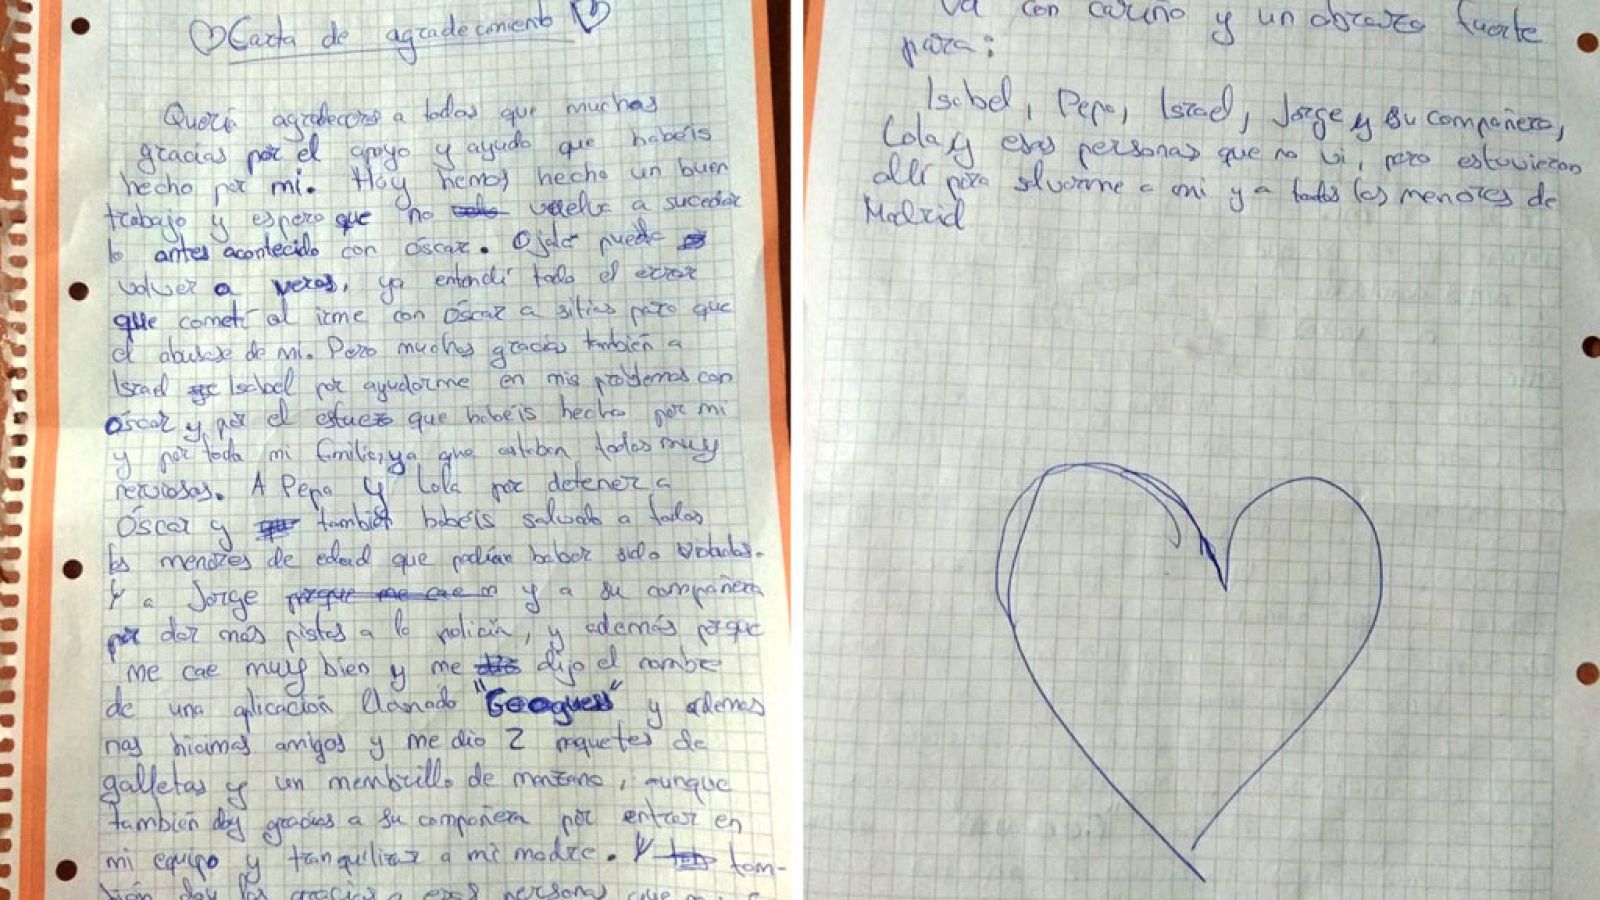 Carta de agradecimiento
Quería agradeceros a todos que muchas
gracias por el apoyo y ayuda que habéis
hecho por mi. Hoy hemos hecho un buen
trabajo y espero que no vuelva a suceder
lo antes acontecido con óscar. Ojalá pueda
volver a veros, ya entendí todo el error
que cometí al irme con óscar a sitios para que
el abusase de mi. Pero muchas gracias también a
Israel Isabel por ayudarme en mis problemas con
óscar y por el esfuezo que habéis hecho por mi
y por toda mi familia, ya que estaban todos muy
nerviosos. A Pepa y Lola por detener a
Óscar y también habéis salvado a todos
los menores de edad que podían haber sido violados.
Y a Jorge porque me cae y a su compañera
por dar más pistas a la policía, y además porque
me cae muy bien y me dijo el nombre
de una aplicación llamado "Geoguess" y además
nos hicimos amigos y me dio 2 paquetes de
galletas y un membrillo de manzana, aunque
también doy gracias a su compañera por entrar en
mi equipo y tranquilizar a mi madre. Y tam-
bién doy las gracias a esas personas que
Va con cariño y un abrazo fuerte
para:
Isabel, Pepa, Israel, Jorge y su compañera,
Lola y esas personas que no vi, pero estuvieron
allí para salvarme a mi y a todos los menores de
Madrid